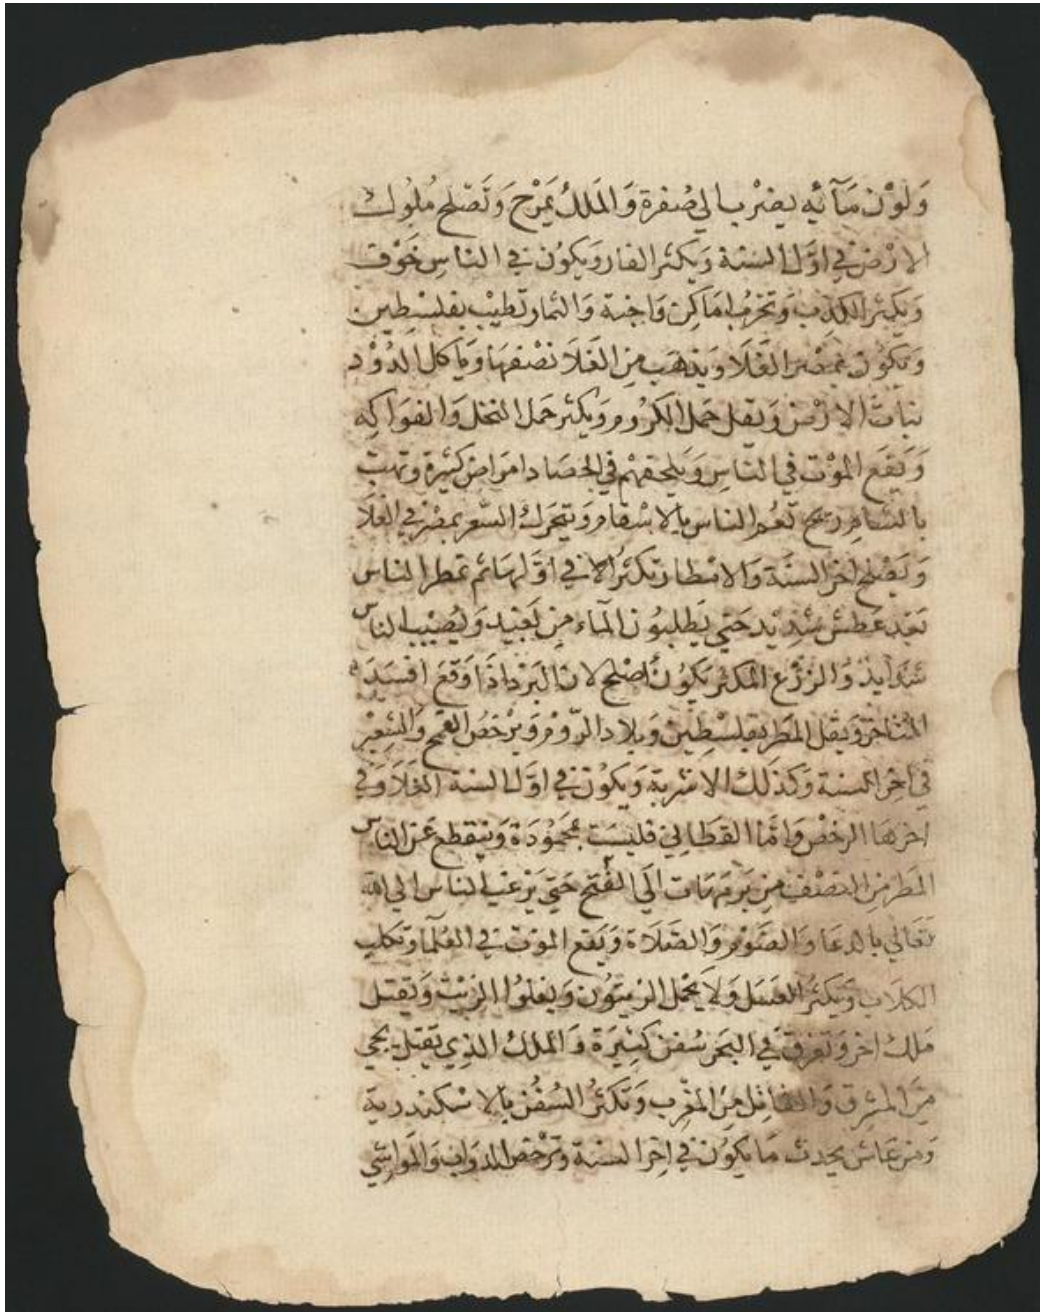 وَلَوْن مَآئِه يضرب الي صُفرة وَالمَلك يَمْرَح وَتَصْلح مُلوك
الارْض في اوَّل السَنة وَيكثر الفار وَيكوُن في الناسِ خَوْف
وَيكثر الكذب وَتخرب امَاكِن وَاجنة وَالثمار تَطيب بفلسْطِين
وَيكوُن بمصْر الغَلَا وَيذهَب مِن الغَلَا نصْفهَا وَيَاكل الدُوْد
نبَات الارْض وَيقل حَمل الكرُوم وَيكثر حَمل النخل وَالفوَاكِه
وَيَقَع الموْت في النّاسِ وَيَلحقهْم في الحَصَاد امرَاض كثيرة وَتهبّ
بالشام ريح تَعُم الناس بالاسْقام وَيتحَرك السّعر بمصْر في الغلَا
وَيَصْلح اخر السَنَة وَالامْطار تكثر الا في اوَّلهَا ثم تمطر الناس
بَعْد عَطش شدِيد حَتي يَطلبوُن المآء مِن بَعْيد وَيُصيْب الناس
شدَايد وَالزرْع المكثر يَكوُن اصْلح لان البَرْد اذَا وَقعَ افسَدَ
المتاخر وَيقل المَطر بفلسْطِين وَبلاد الرّوْم وَيرْخصُ القمح وَالشَعِيْر
في اخِر السنة وَكذلك الاشربة وَيكوُن في اوَّل السنة الغَلَا وَفي
اخرهَا الرخصْ وَامَّا القطَاني فليسَت بمحَموُدَة وَينقطع عَن الناس
المَطر مِن النصْف مِن بَرمهَات الَي الفْتح حَتي يَرْغب الناس الي الله
تعَالي بالدعَا وَالصَوْم وَالصَلَاة وَيَقع الموْت في العُلَمآ وَتكلب
الكلَاب وَيكثُر العَسَل وَلَا يَحْمل الزيتوُن وَيغلوُا الزيْت وَيَقتل
مَلك اخر وَتغرق في البَحر سُفن كثيرَة وَالملك الذِي يَقتل يجي
مِن المشرِق وَالقاتِل مِن المغْرب وَتكثرُ السُفُن بالاسْكندرية
وَمن عَاش يحدث مَا يَكوُن في اخِر السنة وَترْخص الدوَاب وَالموَاشي